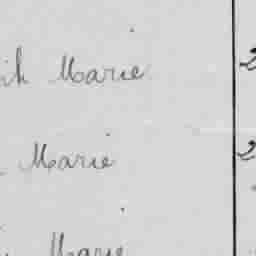 Marie 2
Marie 2
Marie